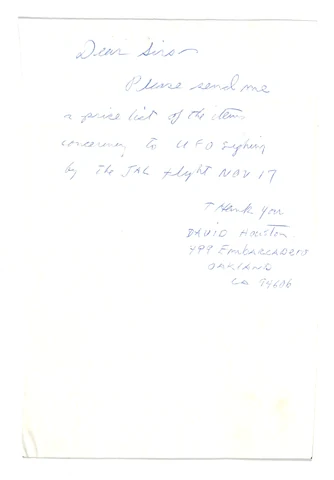 Dear Sirs
Please send me
a price list of the items
concerning to UFO sighting
by The JAL flight NOV 17
Thank you
DAVID Houston
499 EmbARCADERO
OAKLAND
Ca 94606